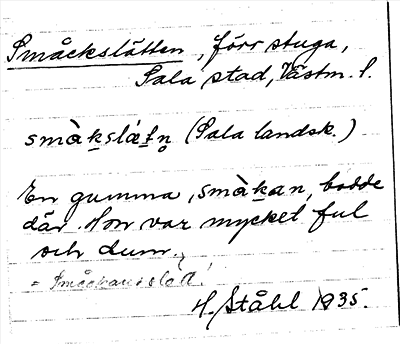 Småckslätten, förr stuga,
Sala stad, Västm. l.
smàkslǽtn̥ (Sala landsk.)
En gumma, smàkan, bodde
där. Hon var mycket ful
och dum.
= Småckans slätt!
H. Ståhl 1935.